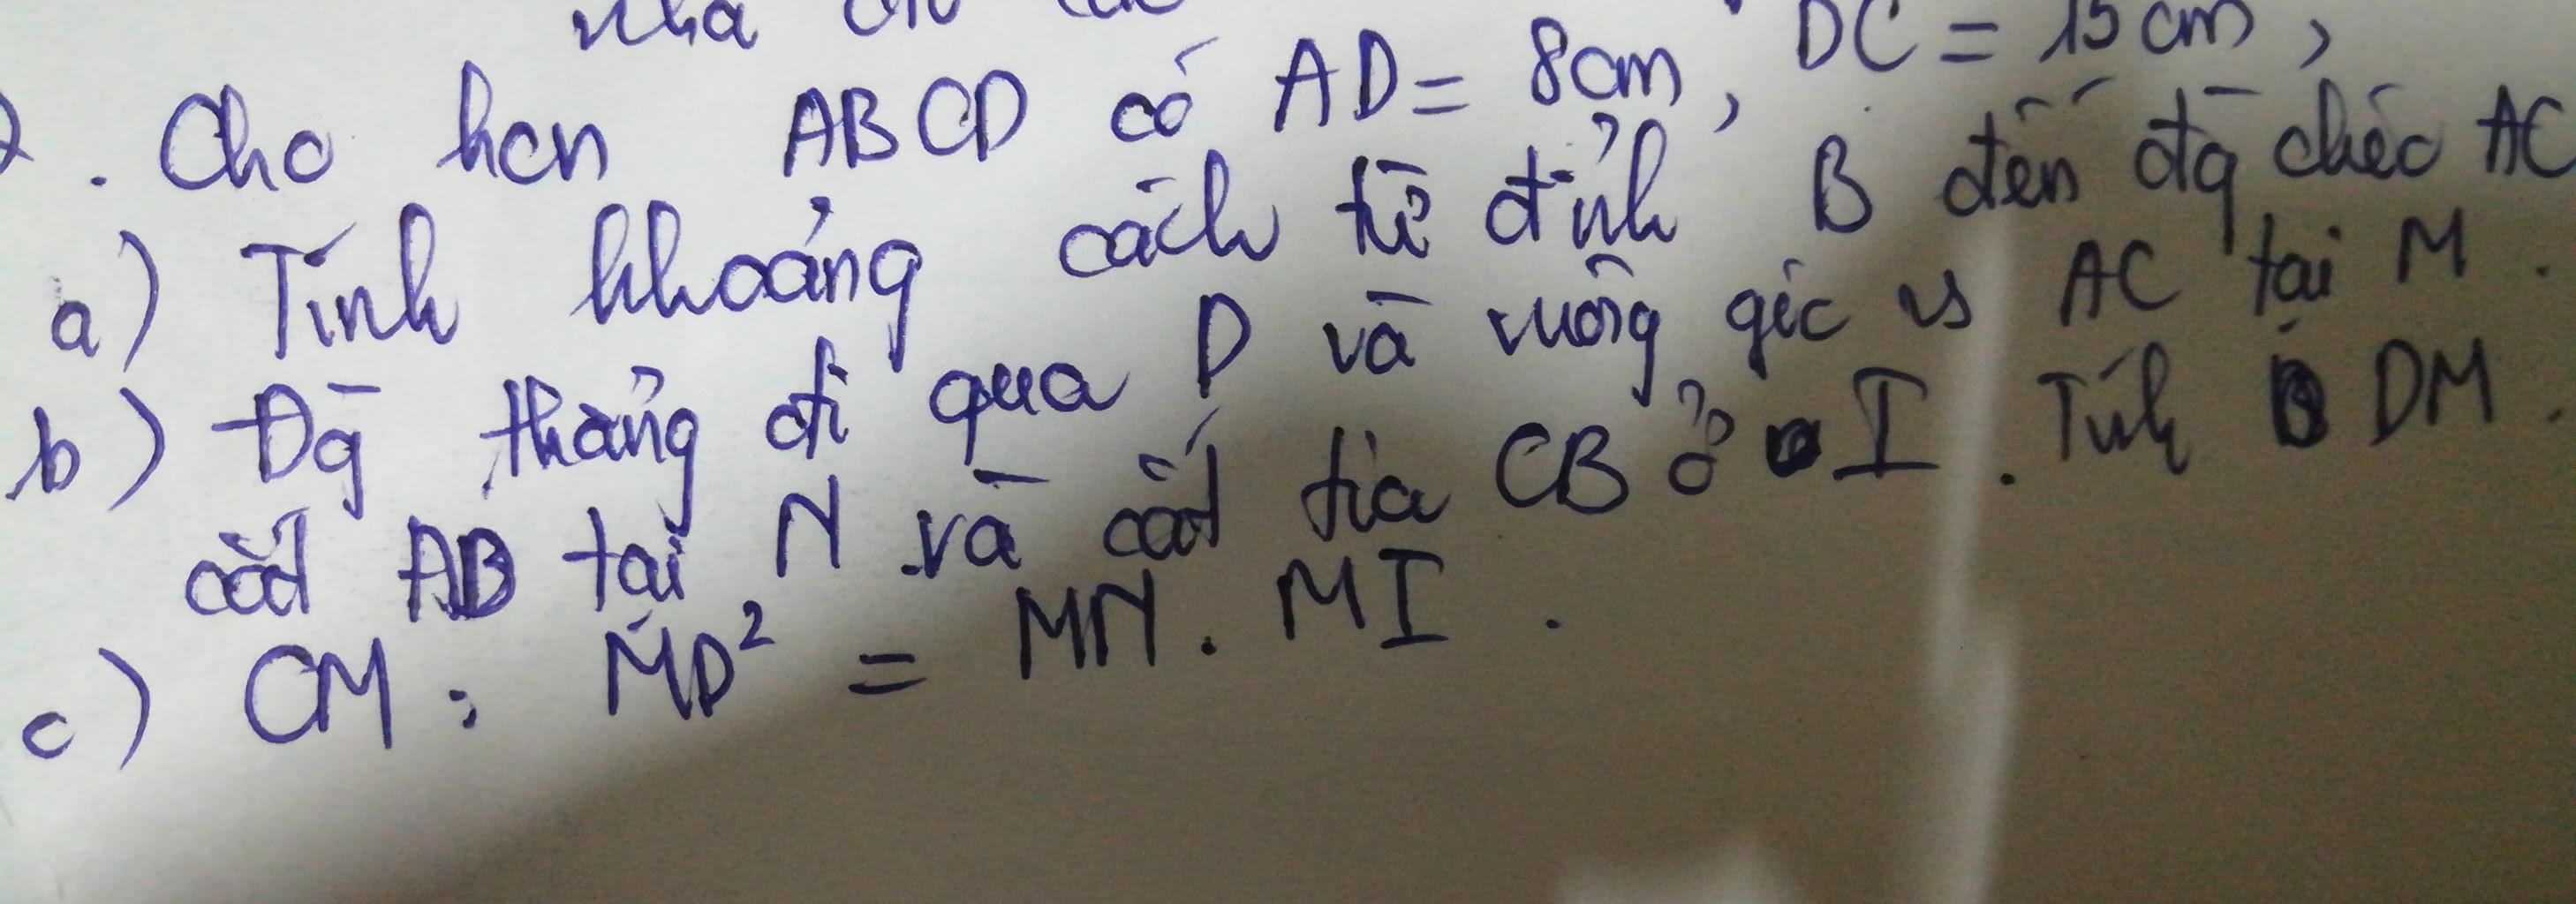 . Cho hcn ABCD có AD = 8cm, DC = 15cm,
a) Tính khoảng cách từ đỉnh B đến đg chéo AC
b) Đg thẳng đi qua D và vuông góc vs AC tại M.
cắt AB tại N và cắt tia CB ở I. Tính DM.
c) CM: MD² = MN. MI.